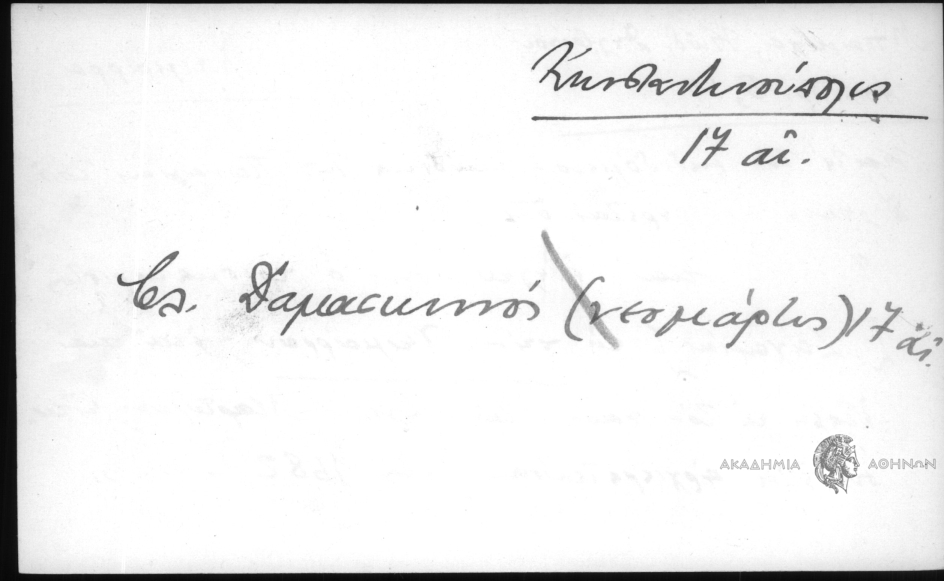 Κωνσταντινούπολις
17 αἰ.
Βλ. Δαμασκηνός (νεομάρτυς) 17 αἰ.
ΑΚΑΔΗΜΙΑ ΑΘΗΝΩΝ